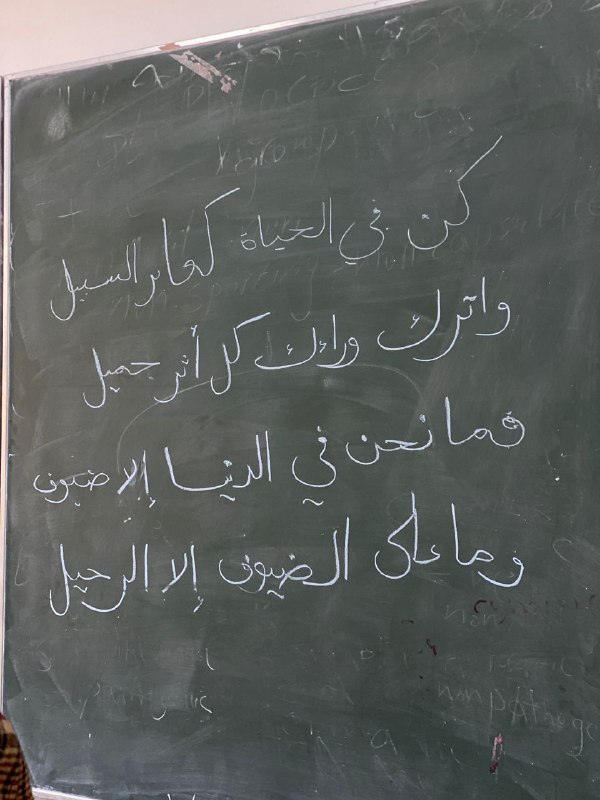 كن في الحياة كعابر السبيل
واترك وراءك كل أثر جميل
فما نحن في الدنيا إلا ضيوف
وما على الضيوف إلا الرحيل